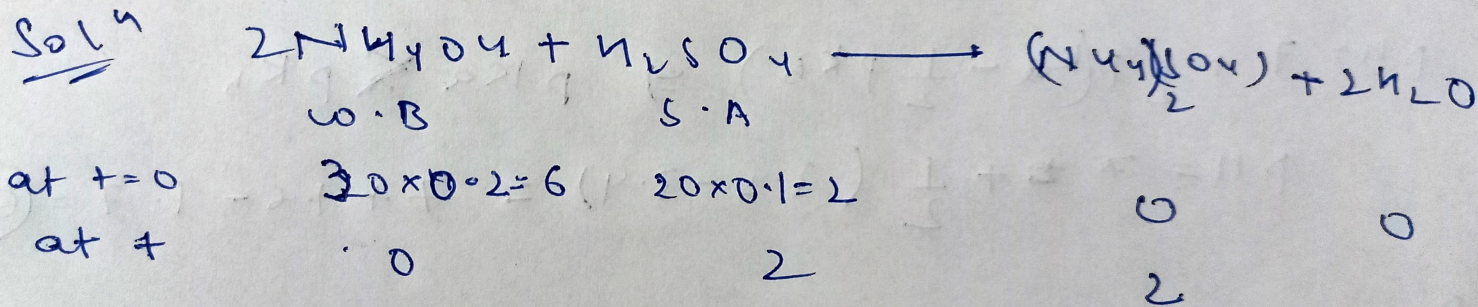 Solⁿ 2NH₄OH + H₂SO₄ → (NH₄)₂SO₄) + 2H₂O
W.B S.A
at t=0 30×0.2=6 20×0.1=2 0 0
at t 0 2 2